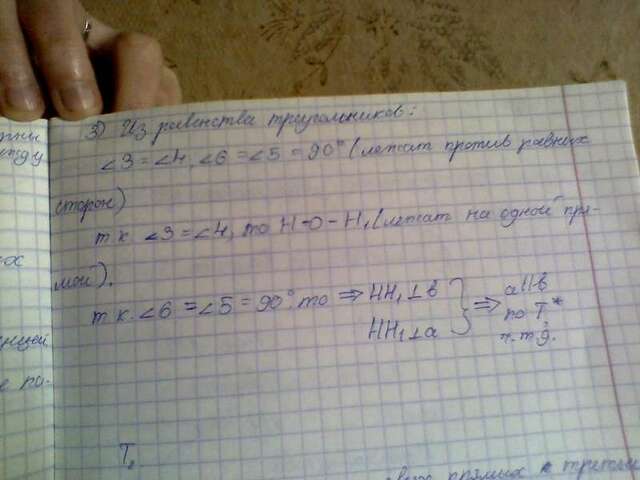 3) Из равенства треугольников:
∠3 = ∠4, ∠6 = ∠5 = 90° (лежат против равных
сторон)
т.к. ∠3 = ∠4, то H-O-H₁ (лежат на одной пря-
мой).
т.к. ∠6 = ∠5 = 90°, то ⇒ HH₁⊥b
HH₁⊥a
} ⇒ a||b
по Т.*
ч.т.д.
T₂
прямых к третьей